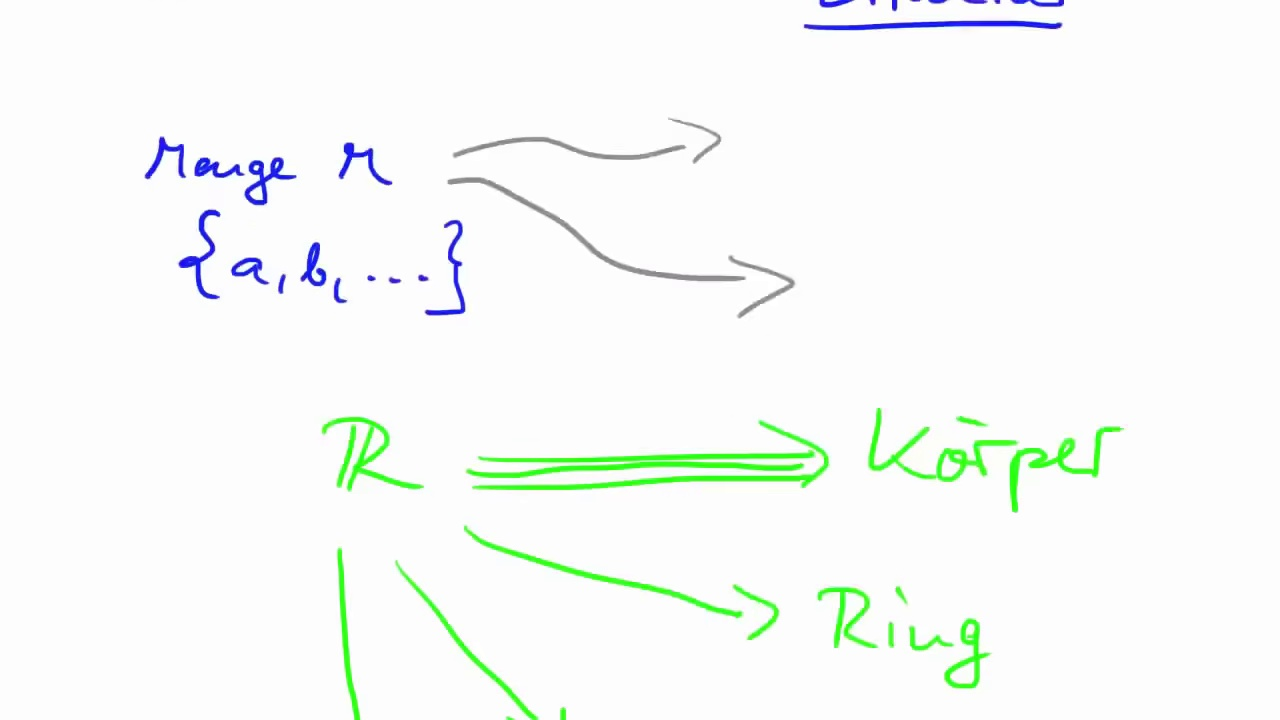 Menge M
{a, b, ...}
ℝ
Körper
Ring